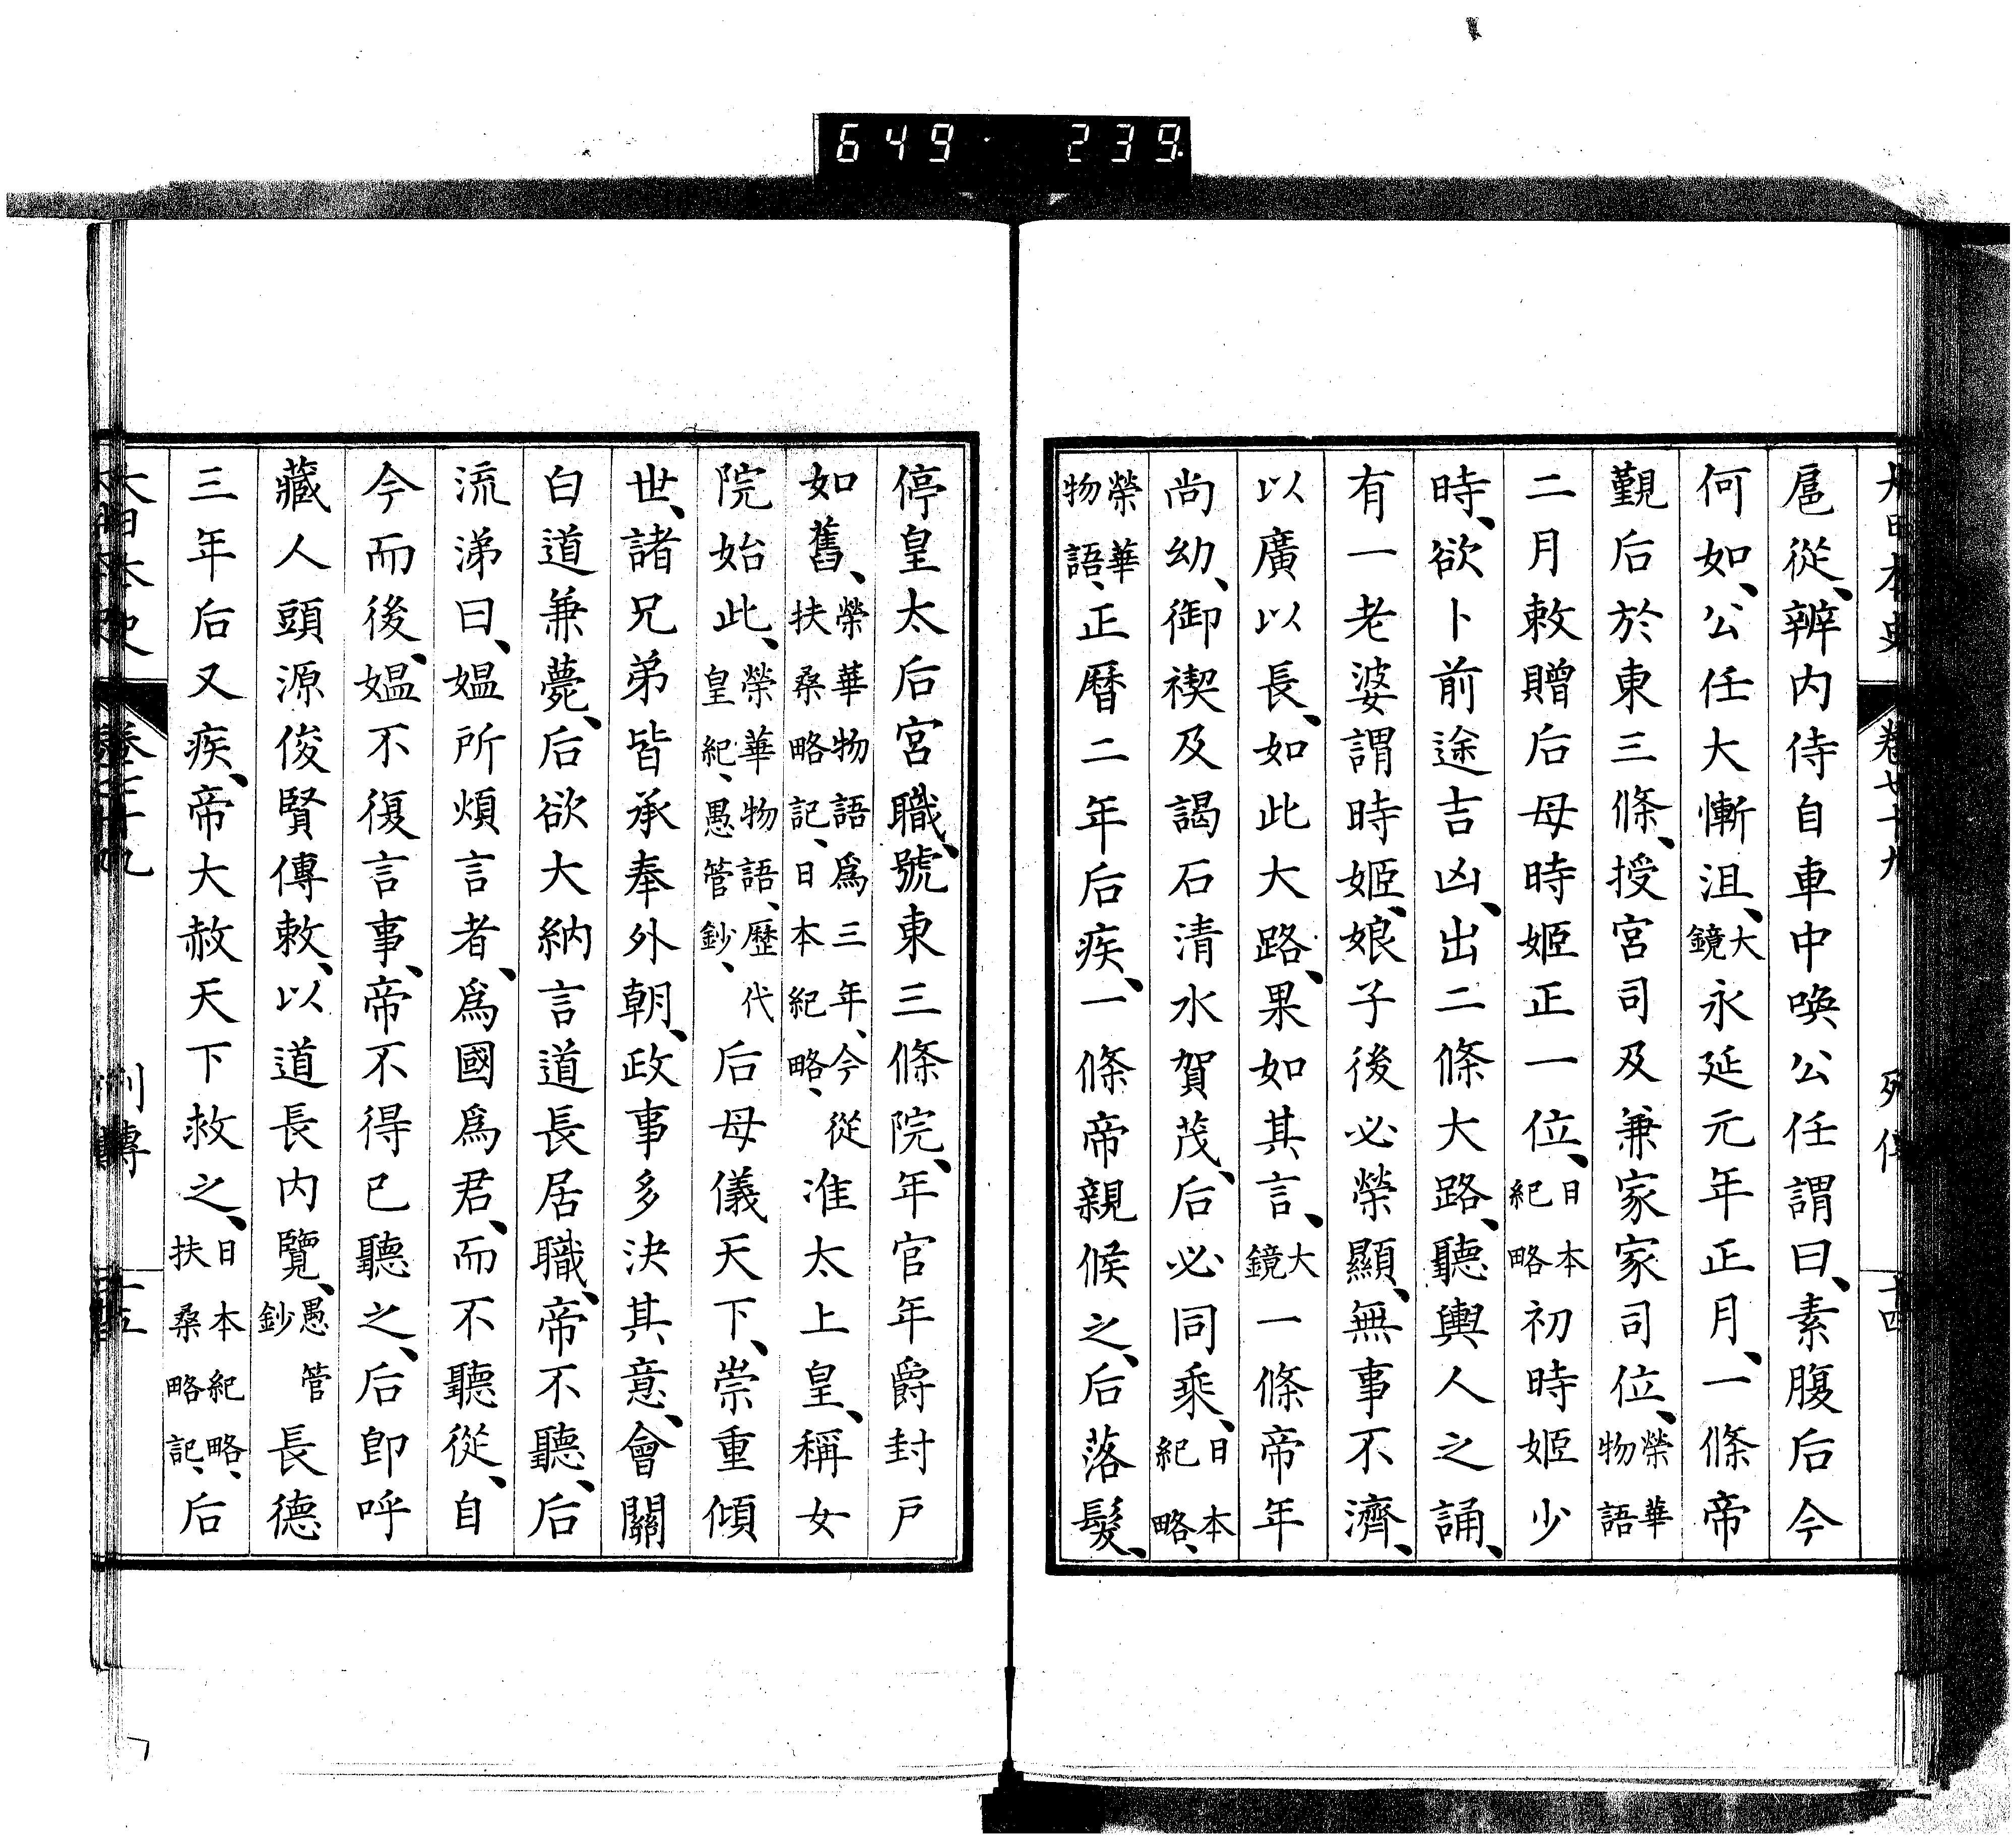 649 239
大日本史 卷七十九 列傳 十四
扈從、辨内侍自車中喚公任謂曰、素腹后今
何如、公任大慚沮、大鏡永延元年正月、一條帝
覲后於東三條、授宮司及兼家家司位、榮華物語
二月敕贈后母時姬正一位、日本紀略初時姬少
時、欲卜前途吉凶、出二條大路、聽輿人之誦、
有一老婆謂時姬、娘子後必榮顯、無事不濟、
以廣以長、如此大路、果如其言、大鏡一條帝年
尚幼、御禊及謁石清水賀茂、后必同乘、日本紀略、
榮華物語、正曆二年后疾、一條帝親候之、后落髮、
停皇太后宮職、號東三條院、年官年爵封戶
如舊、榮華物語爲三年、今從扶桑略記、日本紀略、准太上皇、稱女
院始此、榮華物語、歷代皇紀、愚管鈔、后母儀天下、崇重傾
世、諸兄弟皆承奉外朝、政事多決其意、會關
白道兼薨、后欲大納言道長居職、帝不聽、后
流涕曰、媼所煩言者、爲國爲君、而不聽從、自
今而後、媼不復言事、帝不得已聽之、后卽呼
藏人頭源俊賢傳敕、以道長内覽、愚管鈔長德
三年后又疾、帝大赦天下救之、日本紀略、扶桑略記、后
大日本史 卷七十九 列傳 十五